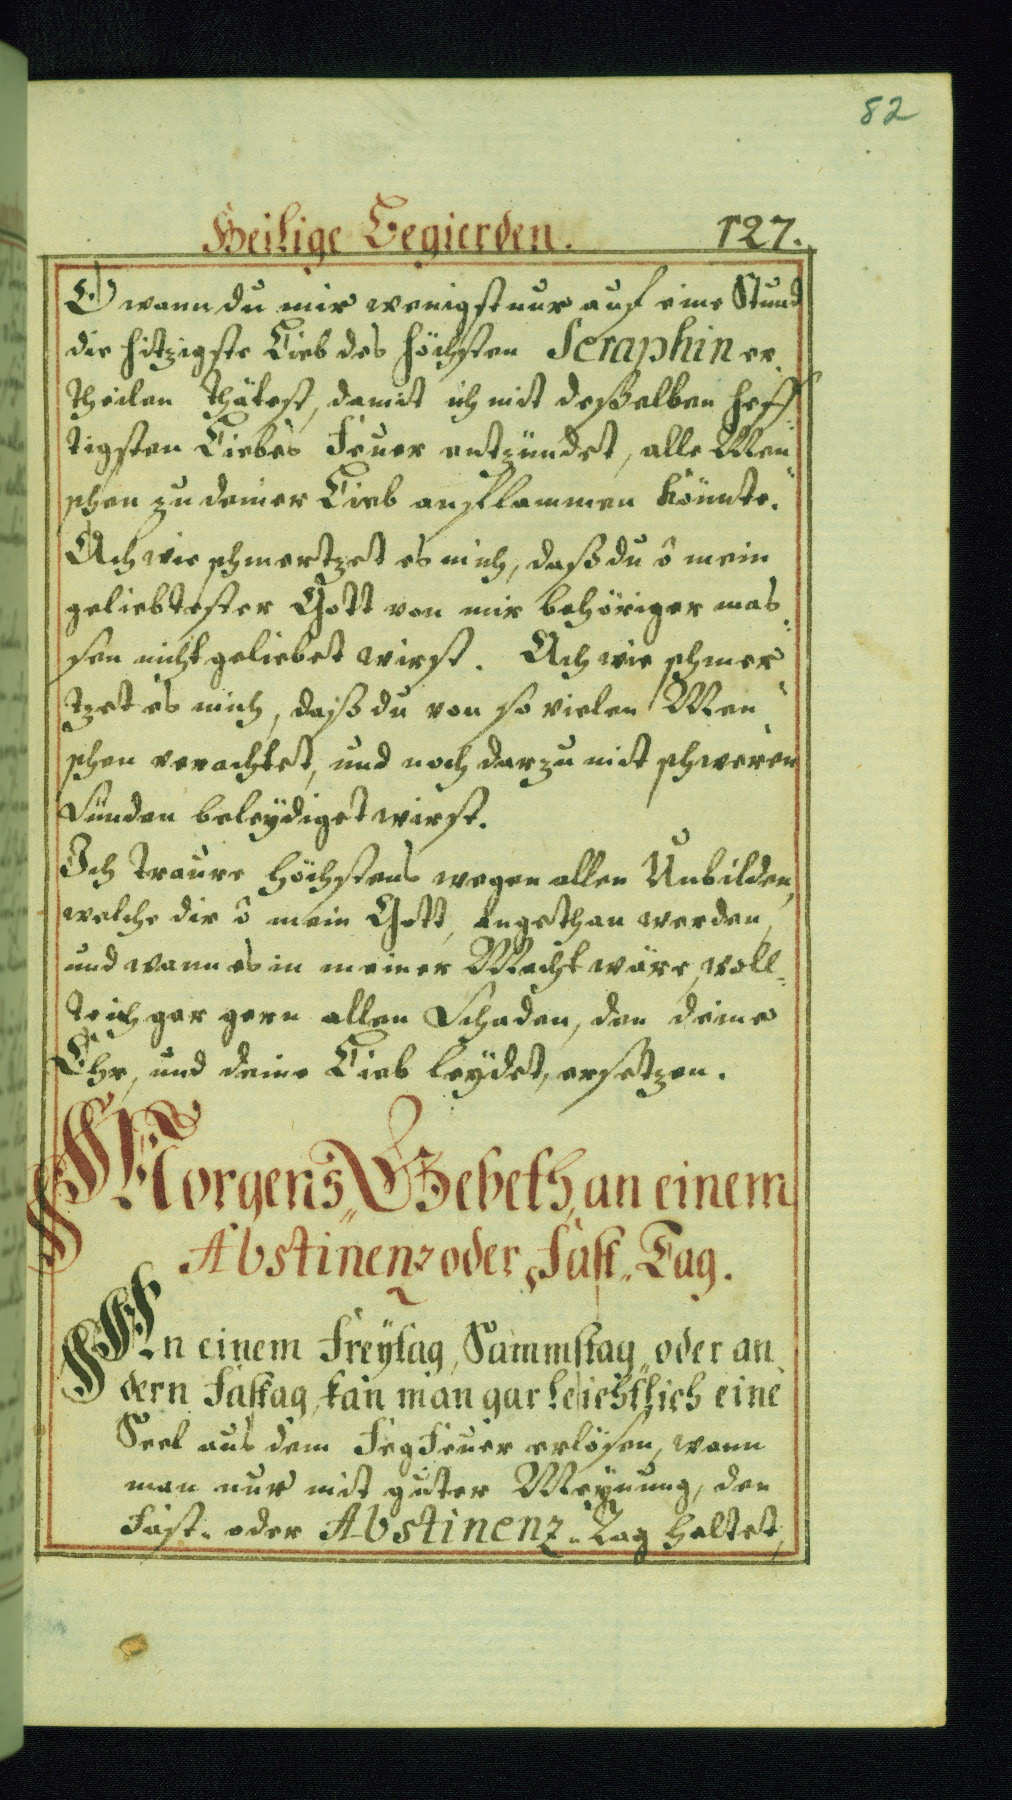 82
Heilige Begierden. 127.
O wann du mir wenigst nur auf eine Stund
die hitzigste Lieb des höchsten Seraphin er¸
theilen thätest, damit ich mit deßelben heff¸
tigsten Liebes Feuer entzündet, alle Men¸
schen zu deiner Lieb anflammen könnte.
Ach wie schmertzet es mich, daß du ô mein
geliebtester Gott von mir behöriger mas¸
sen nicht geliebet wirst. Ach wie schmer¸
tzet es mich, daß du von so vielen Men¸
schen verachtet, und noch darzu mit schweren
Sünden beleydiget wirst.
Ich traure höchstens wegen allen Unbilden,
welche dir ô mein Gott, angethan werden,
und wann es in meiner Macht wäre, woll¸
te ich gar gern allen Schaden, den deine
Ehr, und deine Lieb leydet, ersetzen.
Morgens„ Gebeth, an einem
Abstinenz oder Fast„ Tag.
An einem Freÿtag, Sammstag„ oder an¸
dern Fasttag, kan man gar leichtlich eine
Seel aus dem Fegfeuer erlösen, wann
man nur mit guter Meynung, den
Fast- oder Abstinenz„ Tag haltet,